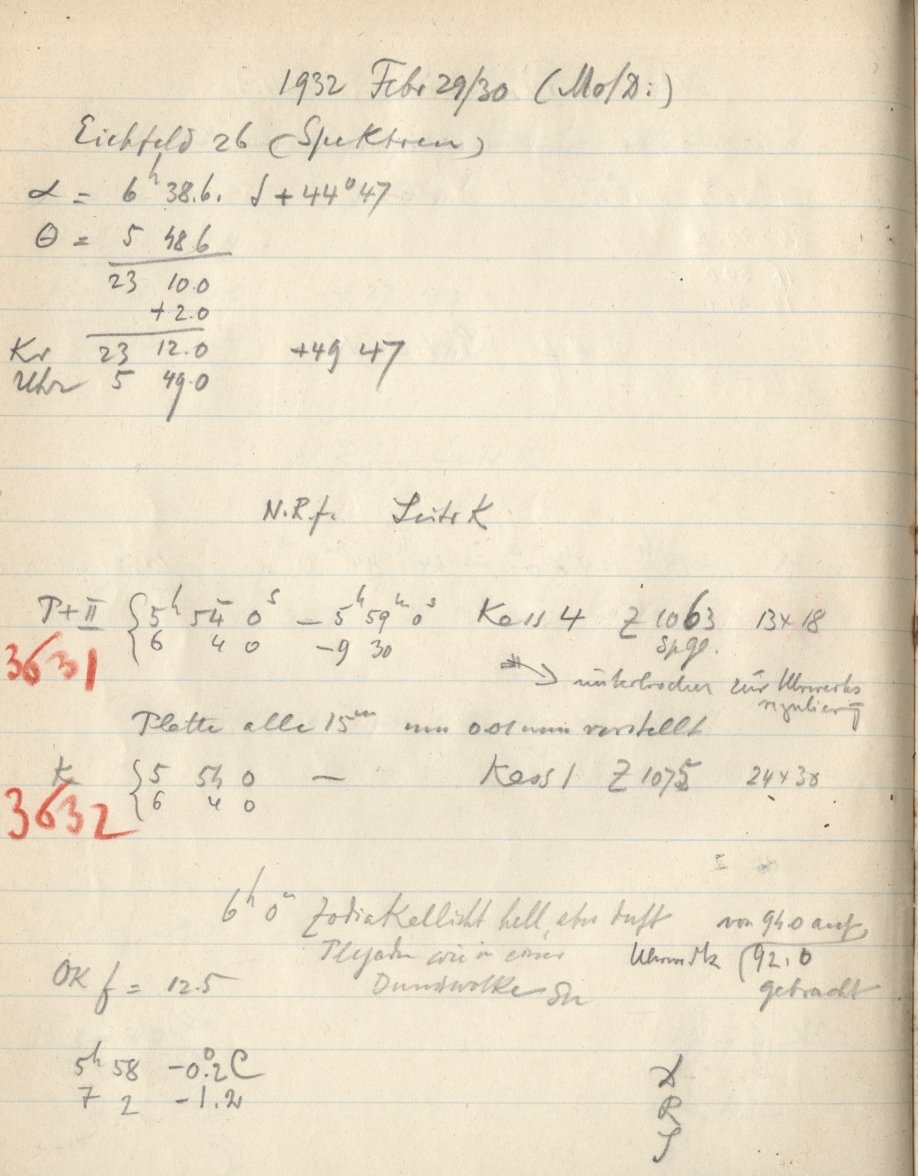 1932 Febr 29/30 (Mo/Di)
Eichfeld 26 (Spektren)
α = 6ʰ 38.6. δ + 44° 47
θ = 5 48.6
23 10.0
+2.0
Kr 23 12.0 +49 47
Uhr 5 49.0
N.R.f. Seite K
T+II 5ʰ 54ᵐ 0ˢ — 5ʰ 59ᵐ 0ˢ Kass 4 Z 1063 13x18
6 4 0 — 9 30 Spgl.
3631
unterbrochen zur Uhrwerks
regulierg
Platte alle 15ᵐ um 0.01 mm verstellt
K 5 54 0 — Kass 1 Z 1075 24x30
6 4 0
3632
6ʰ 0ᵐ Zodiakallicht hell, aber von 94.0 auf
Plejaden wie in einer 92.0
OK f = 12.5 Dunstwolke gebracht
5ʰ 58 -0.°2 C
7 2 -1.2
R